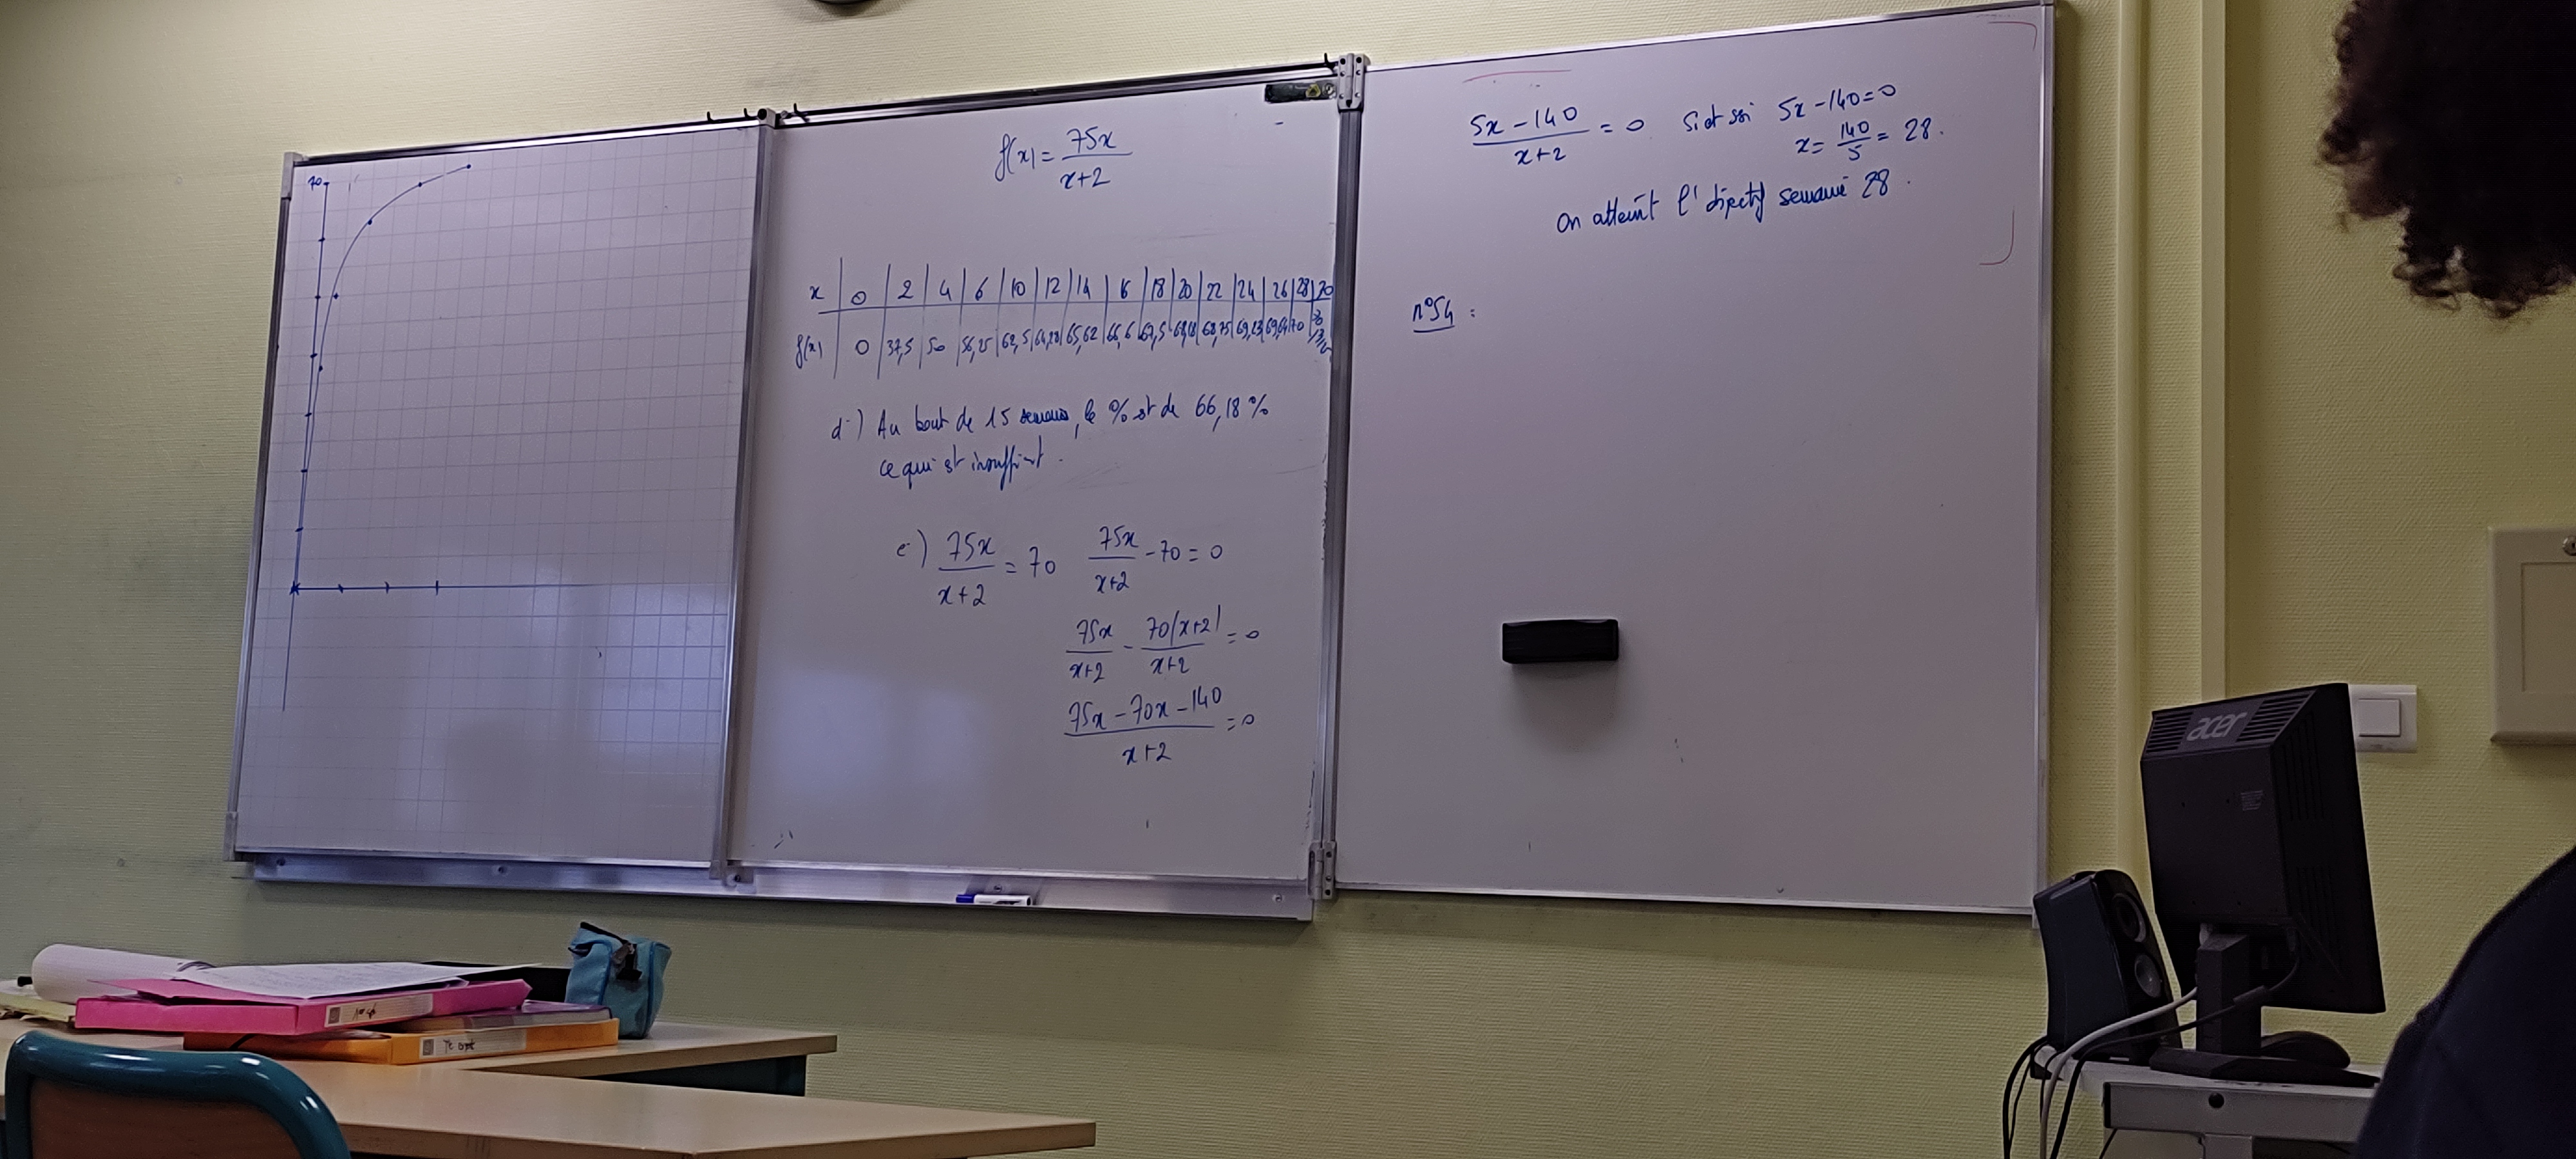 70
f(x) = 75x / x+2
x | 0 | 2 | 4 | 6 | 10 | 12 | 14 | 16 | 18 | 20 | 22 | 24 | 26 | 28 | 30
f(x) | 0 | 37,5 | 50 | 56,25 | 62,5 | 64,28 | 65,62 | 66,6 | 67,5 | 68,18 | 68,75 | 69,23 | 69,64 | 70
d-) Au bout de 15 semaines, le % est de 66,18 %
ce qui est insuffisant.
e-) 75x / x+2 = 70   75x / x+2 - 70 = 0
75x / x+2 - 70(x+2) / x+2 = 0
75x - 70x - 140 / x+2 = 0
5x - 140 / x+2 = 0 si et ssi 5x - 140 = 0
x = 140 / 5 = 28.
On atteint l'objectif semaine 28.
n°54 :
acer